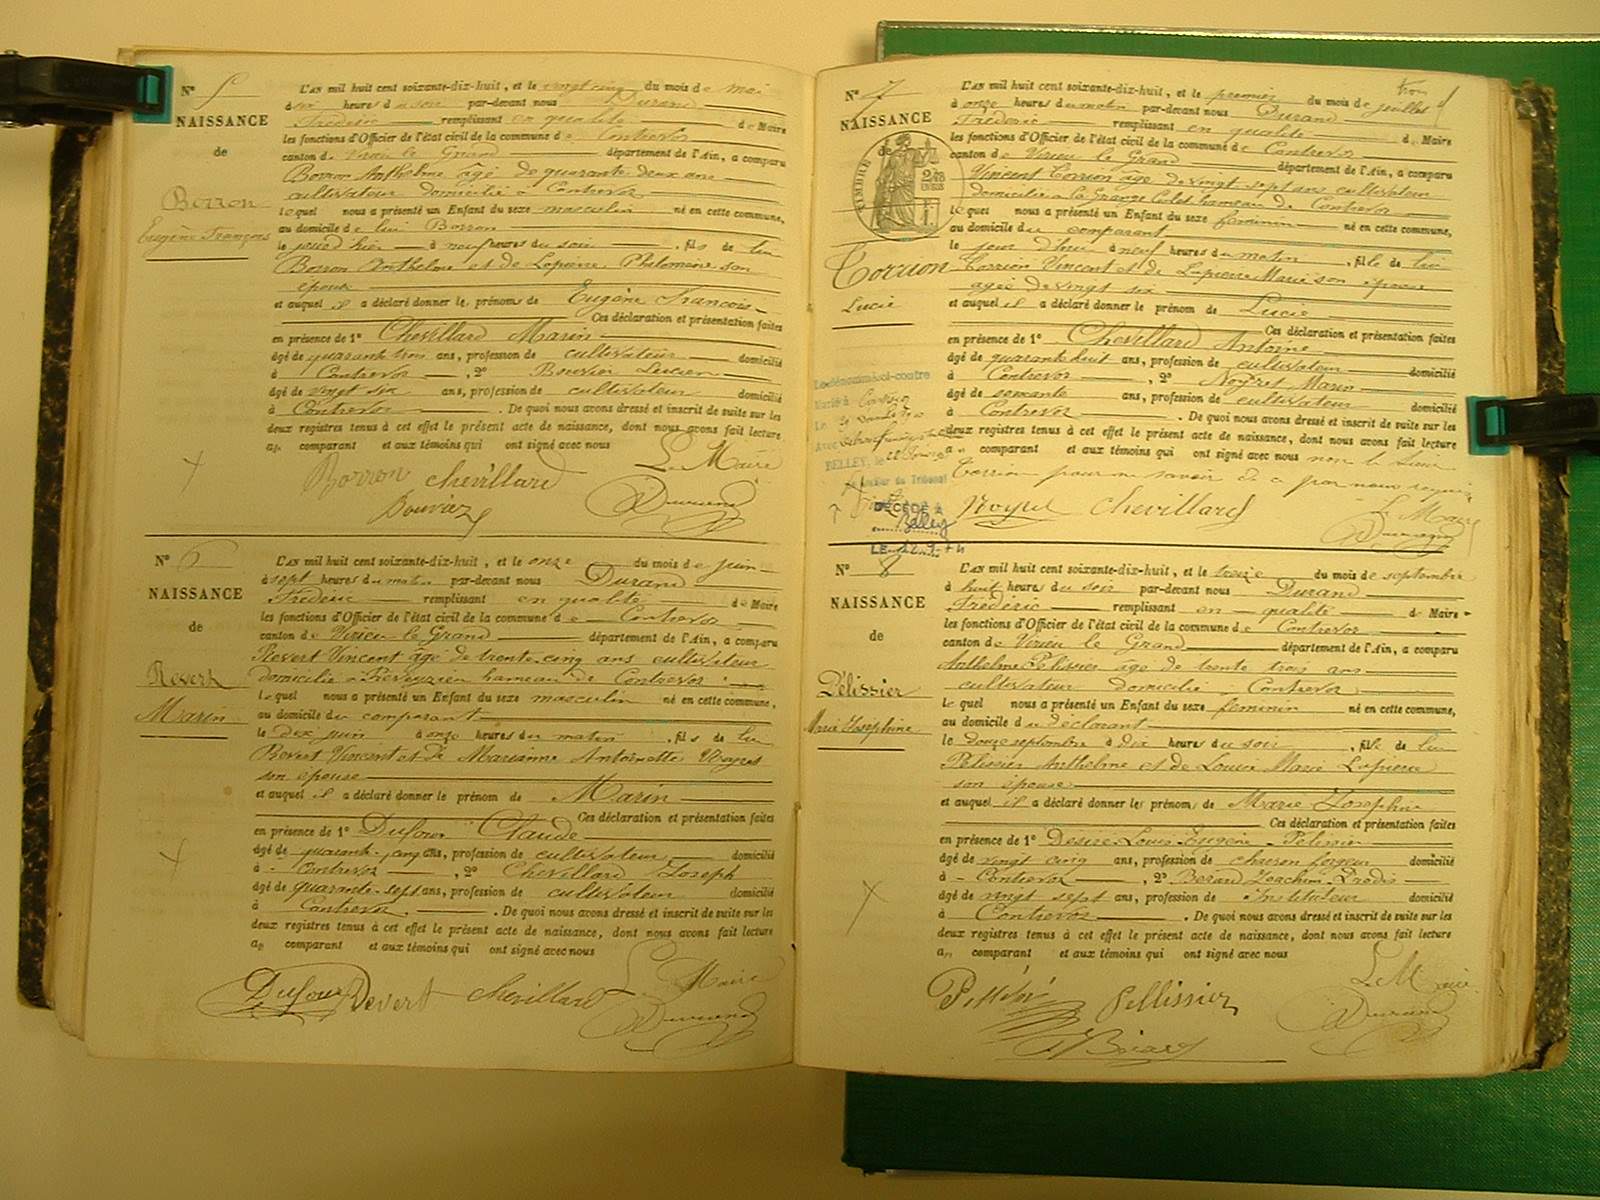 N° 5
NAISSANCE
de
Borron
Eugène François
L'AN mil huit cent soixante-dix-huit, et le vingt cinq du mois de mai
à six heures du soir par-devant nous Durand
Frédéric remplissant en qualité de Maire
les fonctions d'Officier de l'état civil de la commune de Contrevoz
canton de Virieu le Grand département de l'Ain, a comparu
Borron Anthelme âgé de quarante deux ans
cultivateur domicilié à Contrevoz
lequel nous a présenté un Enfant du sexe masculin né en cette commune,
au domicile de lui Borron
le jour d'hier à neuf heures du soir, fils de lui
Borron Anthelme et de Lapierre Philomène son
épouse
et auquel il a déclaré donner les prénoms de Eugène François
Ces déclaration et présentation faites
en présence de 1° Chevillard Marin
âgé de quarante trois ans, profession de cultivateur domicilié
à Contrevoz, 2° Bouvier Lucien
âgé de vingt six ans, profession de cultivateur domicilié
à Contrevoz. De quoi nous avons dressé et inscrit de suite sur les
deux registres tenus à cet effet le présent acte de naissance, dont nous avons fait lecture
au comparant et aux témoins qui ont signé avec nous
Borron Chevillard Le Maire
Bouvier Durand
N° 6
NAISSANCE
de
Revert
Marin
L'AN mil huit cent soixante-dix-huit, et le onze du mois de juin
à sept heures du matin par-devant nous Durand
Frédéric remplissant en qualité de Maire
les fonctions d'Officier de l'état civil de la commune de Contrevoz
canton de Virieu le Grand département de l'Ain, a comparu
Revert Vincent âgé de trente cinq ans cultivateur
domicilié à Preveyzieu hameau de Contrevoz
lequel nous a présenté un Enfant du sexe masculin né en cette commune,
au domicile du comparant
le dix juin à onze heures du matin, fils de lui
Revert Vincent et de Marianne Antoinette
son épouse
et auquel il a déclaré donner le prénom de Marin
Ces déclaration et présentation faites
en présence de 1° Dufour Claude
âgé de quarante-cinq ans, profession de cultivateur domicilié
à Contrevoz, 2° Chevillard Joseph
âgé de quarante-sept ans, profession de cultivateur domicilié
à Contrevoz. De quoi nous avons dressé et inscrit de suite sur les
deux registres tenus à cet effet le présent acte de naissance, dont nous avons fait lecture
au comparant et aux témoins qui ont signé avec nous
Dufour Revert Chevillard Le Maire
Durand
N° 7
NAISSANCE
de
TIMBRE
Corrion
Lucie
L'AN mil huit cent soixante-dix-huit, et le premier du mois de juillet
à onze heures du matin par-devant nous Durand
Frédéric remplissant en qualité de Maire
les fonctions d'Officier de l'état civil de la commune de Contrevoz
canton de Virieu le Grand département de l'Ain, a comparu
Vincent Corrion âgé de vingt-sept ans cultivateur
domicilié à la Grange hameau de Contrevoz
lequel nous a présenté un Enfant du sexe feminin né en cette commune,
au domicile du comparant
le jour d'hui à neuf heures du matin, fille de lui
Corrion Vincent et de Lapierre Marie son épouse
agée de vingt six
et auquel il a déclaré donner le prénom de Lucie
Ces déclaration et présentation faites
en présence de 1° Chevillard Antoine
âgé de quarante huit ans, profession de cultivateur domicilié
à Contrevoz, 2° Noyret Marin
âgé de soixante ans, profession de cultivateur domicilié
à Contrevoz. De quoi nous avons dressé et inscrit de suite sur les
deux registres tenus à cet effet le présent acte de naissance, dont nous avons fait lecture
au comparant et aux témoins qui ont signé avec nous non le sieur
Corrion pour ne savoir de ce par nous requis
Noyret Chevillard Le Maire
Durand
Le dénommé ci-contre
Marié à
Le
Avec
BELLEY, le
Le Greffier du Tribunal
DÉCÉDÉ À
Belley
LE
N° 8
NAISSANCE
de
Pélissier
Marie Joséphine
L'AN mil huit cent soixante-dix-huit, et le treize du mois de septembre
à huit heures du soir par-devant nous Durand
Frédéric remplissant en qualité de Maire
les fonctions d'Officier de l'état civil de la commune de Contrevoz
canton de Virieu le Grand département de l'Ain, a comparu
Anthelme Pélissier âgé de trente trois ans
cultivateur domicilié à Contrevoz
lequel nous a présenté un Enfant du sexe feminin né en cette commune,
au domicile du déclarant
le douze septembre à dix heures du soir, fille de lui
Pelissier Anthelme et de Louise Marie Lapierre
son épouse
et auquel il a déclaré donner les prénoms de Marie Josephine
Ces déclaration et présentation faites
en présence de 1° Désiré Louis Eugène Pelissier
âgé de vingt cinq ans, profession de charron forgeur domicilié
à Contrevoz, 2° Berard Joachim
âgé de vingt sept ans, profession de Instituteur domicilié
à Contrevoz. De quoi nous avons dressé et inscrit de suite sur les
deux registres tenus à cet effet le présent acte de naissance, dont nous avons fait lecture
au comparant et aux témoins qui ont signé avec nous
Pellissier Le Maire
Durand